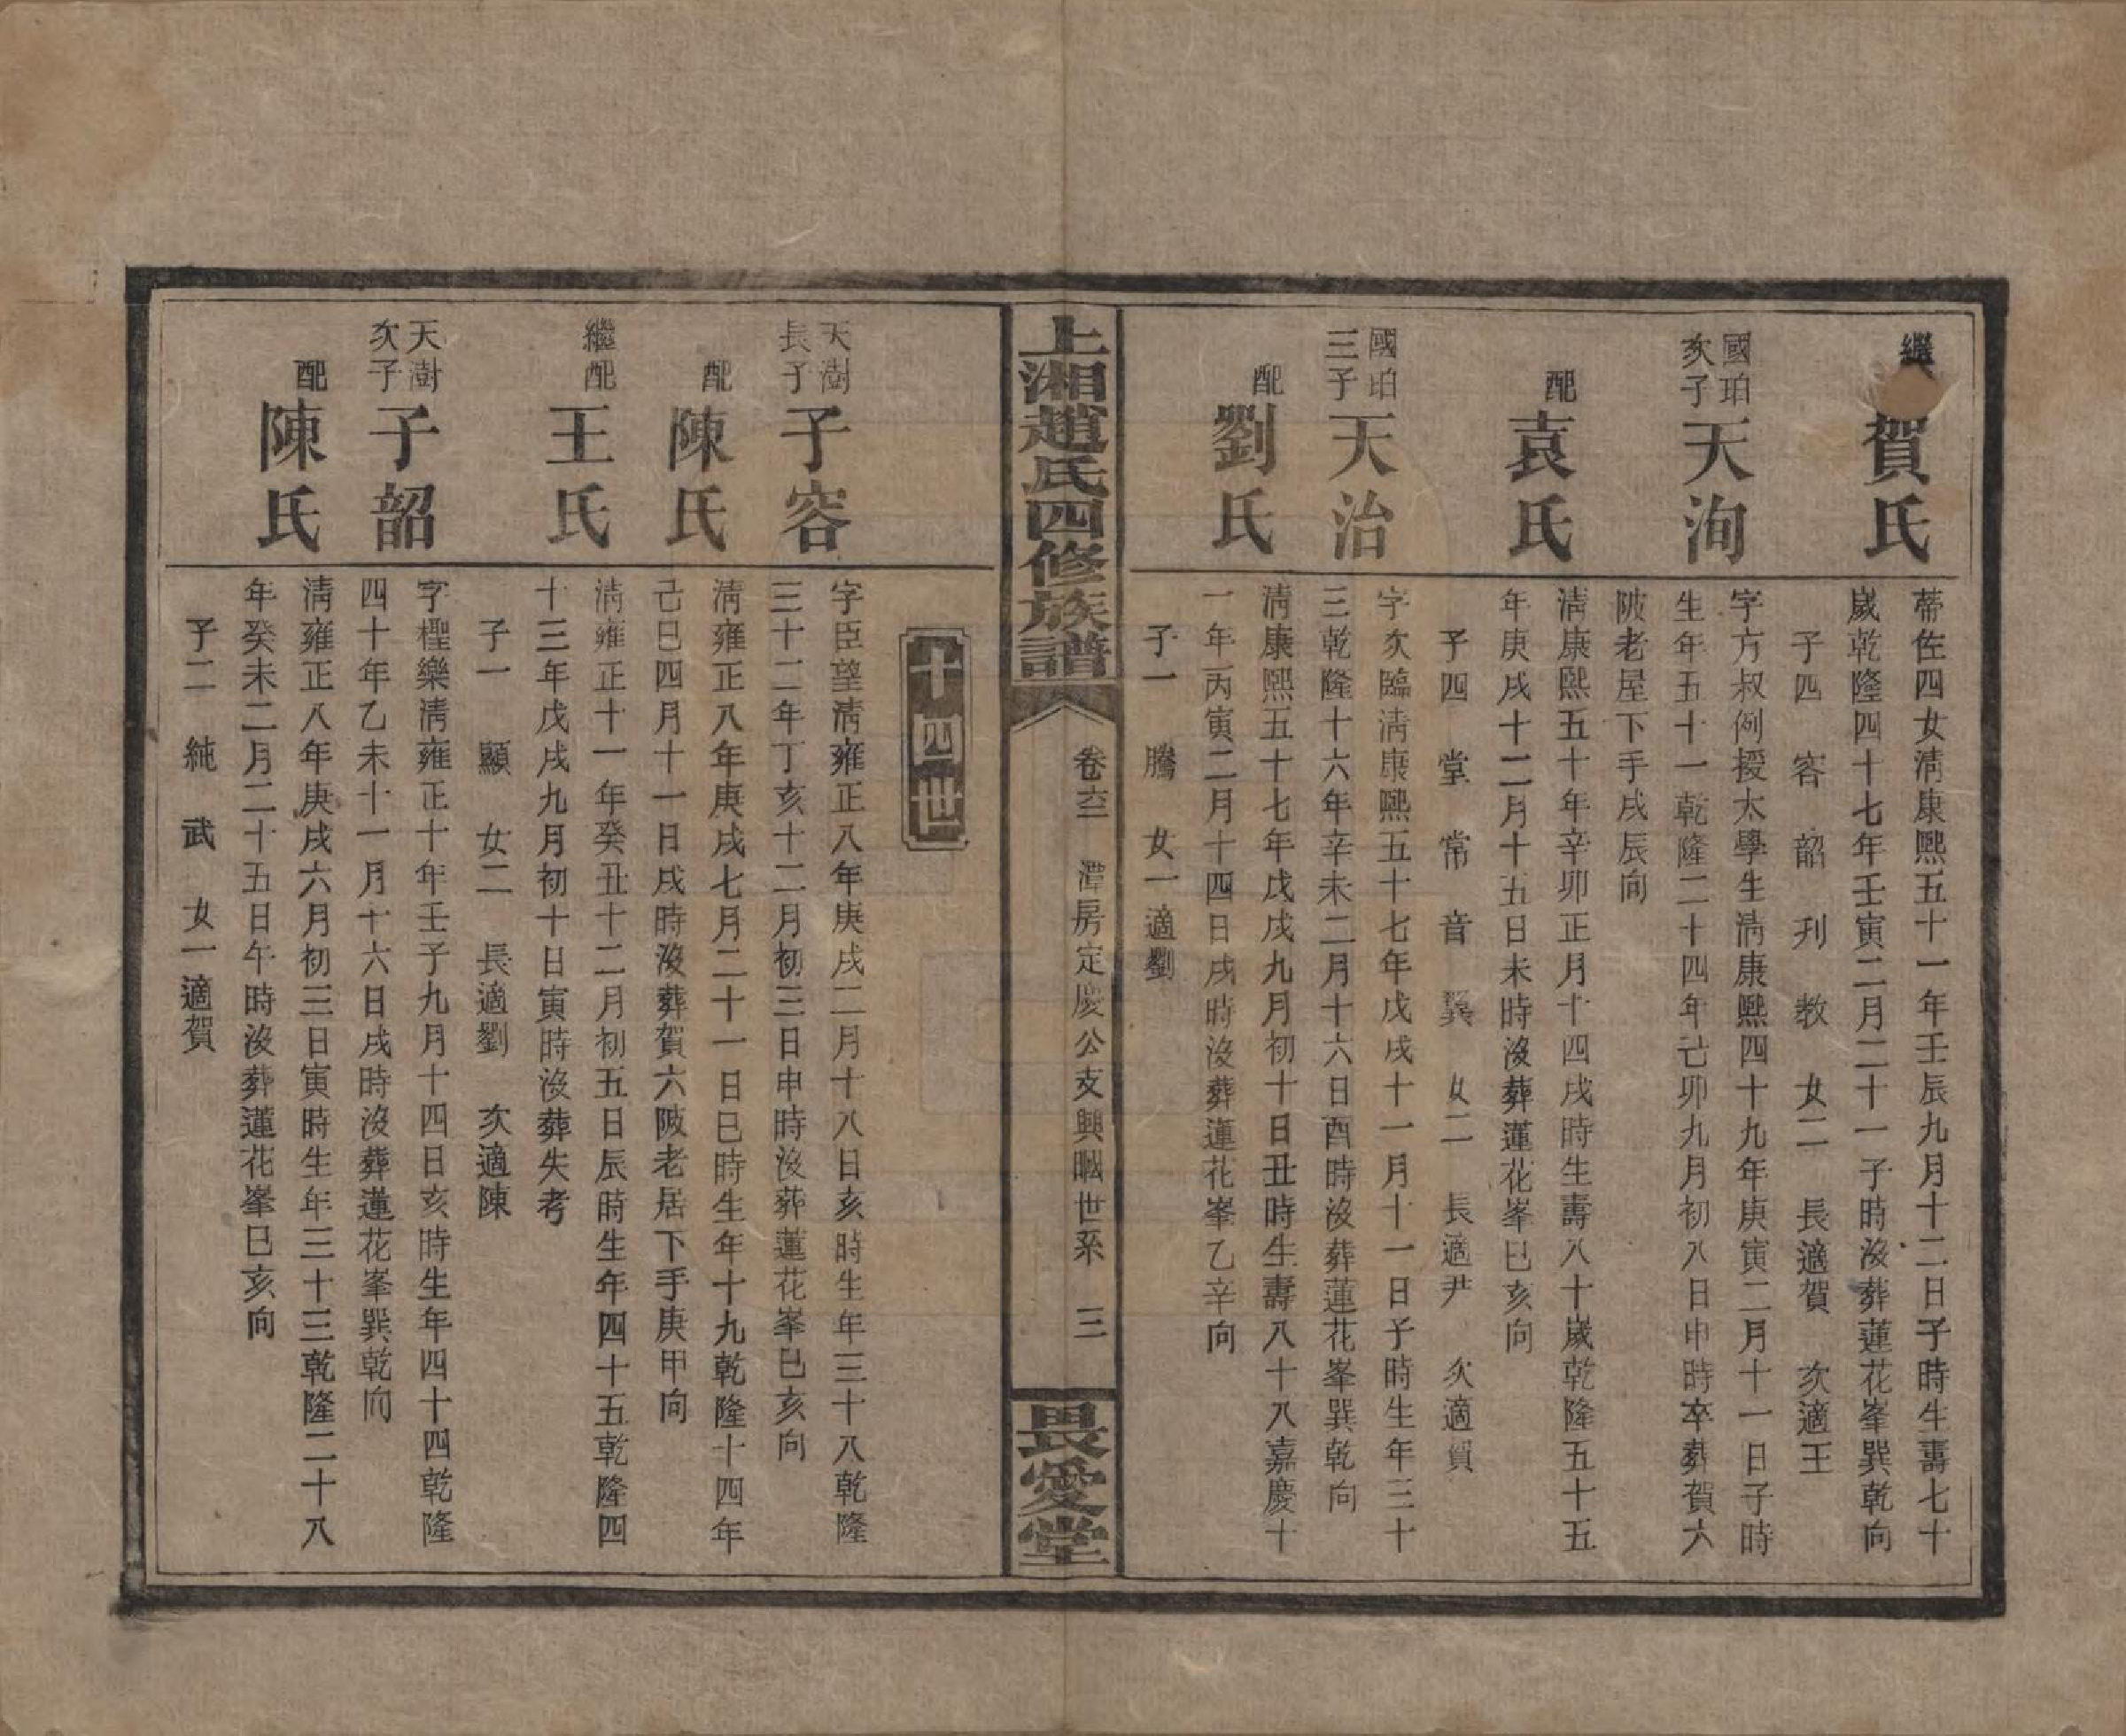 繼
賀氏
蒂佐四女淸康熙五十一年壬辰九月十二日子時生壽七十
歲乾隆四十七年壬寅二月二十一子時沒葬蓮花峯巽乾向
子四 容 韶 刋 教 女二 長適賀 次適王
國珀
次子
天洵
字方叔例授太學生淸康熙四十九年庚寅二月十一日子時
生年五十一乾隆二十四年己卯九月初八日申時卒葬賀六
陂老屋下手戌辰向
配
袁氏
淸康熙五十年辛卯正月十四戌時生壽八十歲乾隆五十五
年庚戌十二月十五日未時沒葬蓮花峯巳亥向
子四 堂 常 音 巽 女二 長適尹 次適賀
國珀
三子
天治
字次臨淸康熙五十七年戊戌十一月十一日子時生年三十
三乾隆十六年辛未二月十六日酉時沒葬蓮花峯巽乾向
配
劉氏
淸康熙五十七年戊戌九月初十日丑時生壽八十八嘉慶十
一年丙寅二月十四日戌時沒葬蓮花峯乙辛向
子一 騰 女一適劉
上湘趙氏四修族譜
潭房定慶公支興𣆀世系 三
畏愛堂
十四世
天澍
長子
子容
字臣望淸雍正八年庚戌二月十八日亥時生年三十八乾隆
三十二年丁亥十二月初三日申時沒葬蓮花峯巳亥向
配
陳氏
淸雍正八年庚戌七月二十一日巳時生年十九乾隆十四年
己巳四月十一日戌時沒葬賀六陂老居下手庚甲向
繼配
王氏
淸雍正十一年癸丑十二月初五日辰時生年四十五乾隆四
十三年戊戌九月初十日寅時沒葬失考
子一 顯 女二 長適劉 次適陳
天澍
次子
子韶
字樫樂淸雍正十年壬子九月十四日亥時生年四十四乾隆
四十年乙未十一月十六日戌時沒葬蓮花峯巽乾向
配
陳氏
淸雍正八年庚戌六月初三日寅時生年三十三乾隆二十八
年癸未二月二十五日午時沒葬蓮花峯巳亥向
子二 純 武 女一適賀